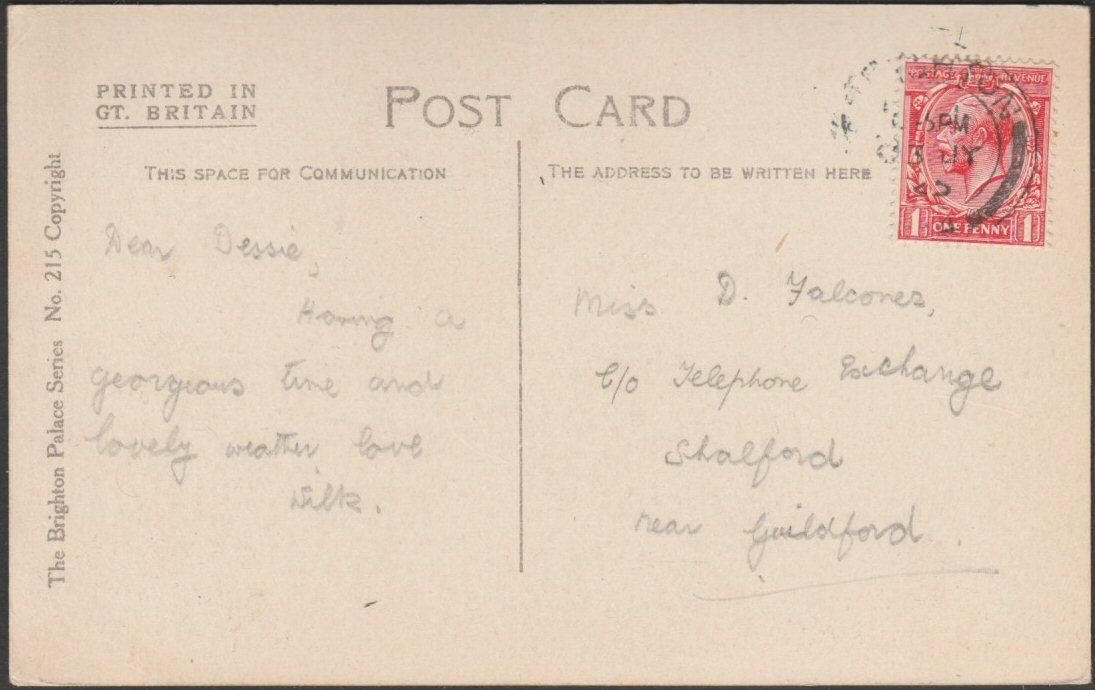 PRINTED IN
GT. BRITAIN
POST CARD
THIS SPACE FOR COMMUNICATION
THE ADDRESS TO BE WRITTEN HERE
The Brighton Palace Series No. 215 Copyright
Dear Dessie,
Having a
georgious time and
lovely weather love
Miss D. Falconer,
c/o Telephone Exchange
Shalford
near Guildford.
POSTAGE REVENUE
1 ONE PENNY 1
PM